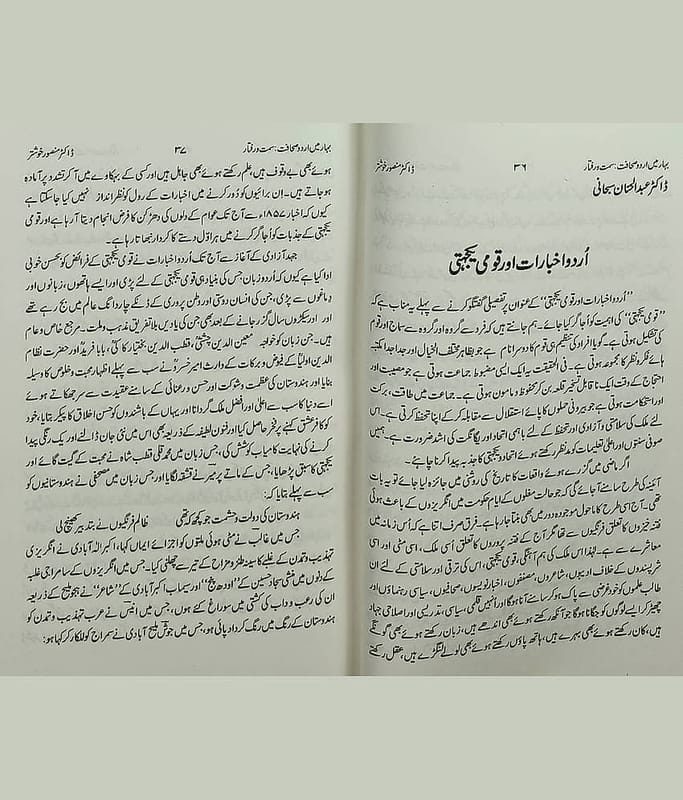 بہار میں اردو صحافت: سمت و رفتار ۳۶ ڈاکٹر منصور خوشتر
ڈاکٹر عبدالحنان سبحانی
اُردو اخبارات اور قومی یکجہتی
”اُردو اخبارات اور قومی یکجہتی“ کے عنوان پر تفصیلی گفتگو کرنے سے پہلے یہ مناسب ہے کہ
”قومی یکجہتی“ کی اہمیت کو اُجاگر کیا جائے۔ ہم جانتے ہیں کہ فرد سے گروہ اور گروہ سے سماج اور قوم
کی تشکیل ہوتی ہے۔ گویا افراد کی تنظیم ہی قوم کا دوسرا نام ہے جو بظاہر مختلف الخیال اور جدا جدا مکتبہ
ہائے فکر و نظر کا مجموعہ ہوتی ہے۔ فی الحقیقت یہ ایک ایسی مضبوط جماعت ہوتی ہے جو مصیبت اور
احتجاج کے وقت ایک ناقابل تسخیر قلعہ بن کر محفوظ و مامون ہوتی ہے۔ جماعت میں طاقت، برکت
اور استحکامت ہوتی ہے جو بیرونی حملوں کا پائے استقلال سے مقابلہ کر کے اپنا تحفظ کرتی ہے۔ اس
لئے ملک کی سلامتی و آزادی اور تحفظ کے لئے باہمی اتحاد اور یگانگت کی اشد ضرورت ہے۔ ہمیں
صوفی سنتوں اور اعلیٰ تعلیمات کو مدنظر رکھتے ہوئے اتحاد و یکجہتی کا جذبہ پیدا کرنا چاہئے۔
اگر ماضی میں گزرے ہوئے واقعات کا تاریخ کی روشنی میں جائزہ لیا جائے تو یہ بات
آئینہ کی طرح سامنے آجائے گی کہ جو حالت مغلوں کے ایام حکومت میں انگریزوں کے باعث ہوئی
تھی۔ آج اُسی طرح کا ماحول موجودہ دور میں بھی بنتا جا رہا ہے۔ فرق صرف اتنا ہے کہ اُس زمانہ میں
فتنہ خیزوں کا تعلق فرنگیوں سے تھا مگر آج کے فتنہ پروروں کا تعلق اُسی ملک، اسی مٹی اور اسی
معاشرے سے ہے۔ لہٰذا اس ملک کی ہم آہنگی، قومی یکجہتی، اس کی ترقی اور سلامتی کے لئے ان
شرپسندوں کے خلاف ادیبوں، شاعروں، مصنفوں، اخبار نویسوں، صحافیوں، سیاسی رہنماؤں اور
طالب علموں کو خود غرضی سے پاک ہو کر سامنے آنا ہوگا اور انہیں قلمی، سیاسی، تدریسی اور اصلاحی جہاد
چھیڑ کر ایسے لوگوں کو جگانا ہوگا جو آنکھ رکھتے ہوئے بھی اندھے ہیں، زبان رکھتے ہوئے بھی گونگے
ہیں، کان رکھتے ہوئے بھی بہرے ہیں، ہاتھ پاؤں رکھتے ہوئے بھی لولے لنگڑے ہیں، عقل رکھتے
بہار میں اردو صحافت: سمت و رفتار ۳۷ ڈاکٹر منصور خوشتر
ہوئے بھی بے وقوف ہیں، علم رکھتے ہوئے بھی جاہل ہیں اور کسی کے بہکاوے میں آکر تشدد پر آمادہ
ہو جاتے ہیں۔ اِن برائیوں کو دُور کرنے میں اخبارات کے رول کو نظر انداز نہیں کیا جا سکتا ہے
کیوں کہ اخبار ۱۸۵۷ء سے آج تک عوام کے دلوں کی دھڑکن کا فرض انجام دیتا آ رہا ہے اور قومی
یکجہتی کے جذبات کو اُجاگر کرنے میں ہر اول دستے کا کردار نبھاتا رہا ہے۔
جہد آزادی کے آغاز سے آج تک اُردو اخبارات نے قومی یکجہتی کے فرائض کو بحسن خوبی
ادا کیا ہے کیوں کہ اُردو زبان جس کی بنیاد ہی قومی یکجہتی کے لئے پڑی اور ایسے ہاتھوں، زبانوں اور
دماغوں سے پڑی، جن کی انسان دوستی اور وطن پروری کے ڈنکے چار دانگ عالم میں بج رہے تھے
اور اور سیکڑوں سال گزر جانے کے بعد بھی جن کی یادیں بلا تفریق مذہب و ملت۔ مرجع خاص و عام
ہیں۔ جن زبان کو خواجہ معین الدین چشتیؒ، قطب الدین بختیار کاکیؒ، بابا فریدؒ اور حضرت نظام
الدین اولیاؒ کے فیوض و برکات کے وارث امیر خسروؒ نے سب سے پہلے اظہار محبت و خلوص کا وسیلہ
بنایا اور ہندوستان کی عظمت و شوکت اور حسن و رعنائی کے سامنے عقیدت سے سر جھکاتے ہوئے
اسے دنیا کا سب سے اعلیٰ اور افضل ملک گردانا اور یہاں کے باشندوں کو حسن اخلاق کا پیکر بتایا، خود
کو کافر عشق کہنے پر فخر حاصل کیا اور فنون لطیفہ کے ذریعہ بھی اس میں نئی جان ڈالنے اور یک رنگی پیدا
کرنے کی نہایت کامیاب کوشش کی، جس زبان میں محمد قلی قطب شاہ نے محبت کے گیت گائے اور
یکجہتی کا سبق پڑھایا، جس کے ماتھے پر میر نے قشقہ لگایا اور جس زبان میں مصحفی نے ہندوستانیوں کو
سب سے پہلے بتایا کہ:
ہندوستان کی دولت و حشمت جو کچھ کہ تھی ظالم فرنگیوں نے بتدبیر کھینچ لی
جس میں غالب نے مٹی ہوئی ملتوں کو اجزائے ایماں کہا، اکبر الٰہ آبادی نے انگریزی
تہذیب و تمدن کے غلبے کا سینہ طنز و مزاح کے تیر سے چھلنی کیا۔ جس میں انگریزوں کے سامراجی غلبہ
کے دنوں میں منشی سجاد حسین کے ”اودھ پنچ“ اور سیماب اکبر آبادی کے ”شاعر“ نے ہجو ملیح کے ذریعہ
ان کی رعب و داب کی کشتی میں سوراخ کئے ہوں، جس میں انیس نے عرب تہذیب و تمدن کو
ہندوستان کے رنگ میں رنگ کر داد پائی ہو، جس میں جوش ملیح آبادی نے سمراج کو للکار کر کہا ہو: